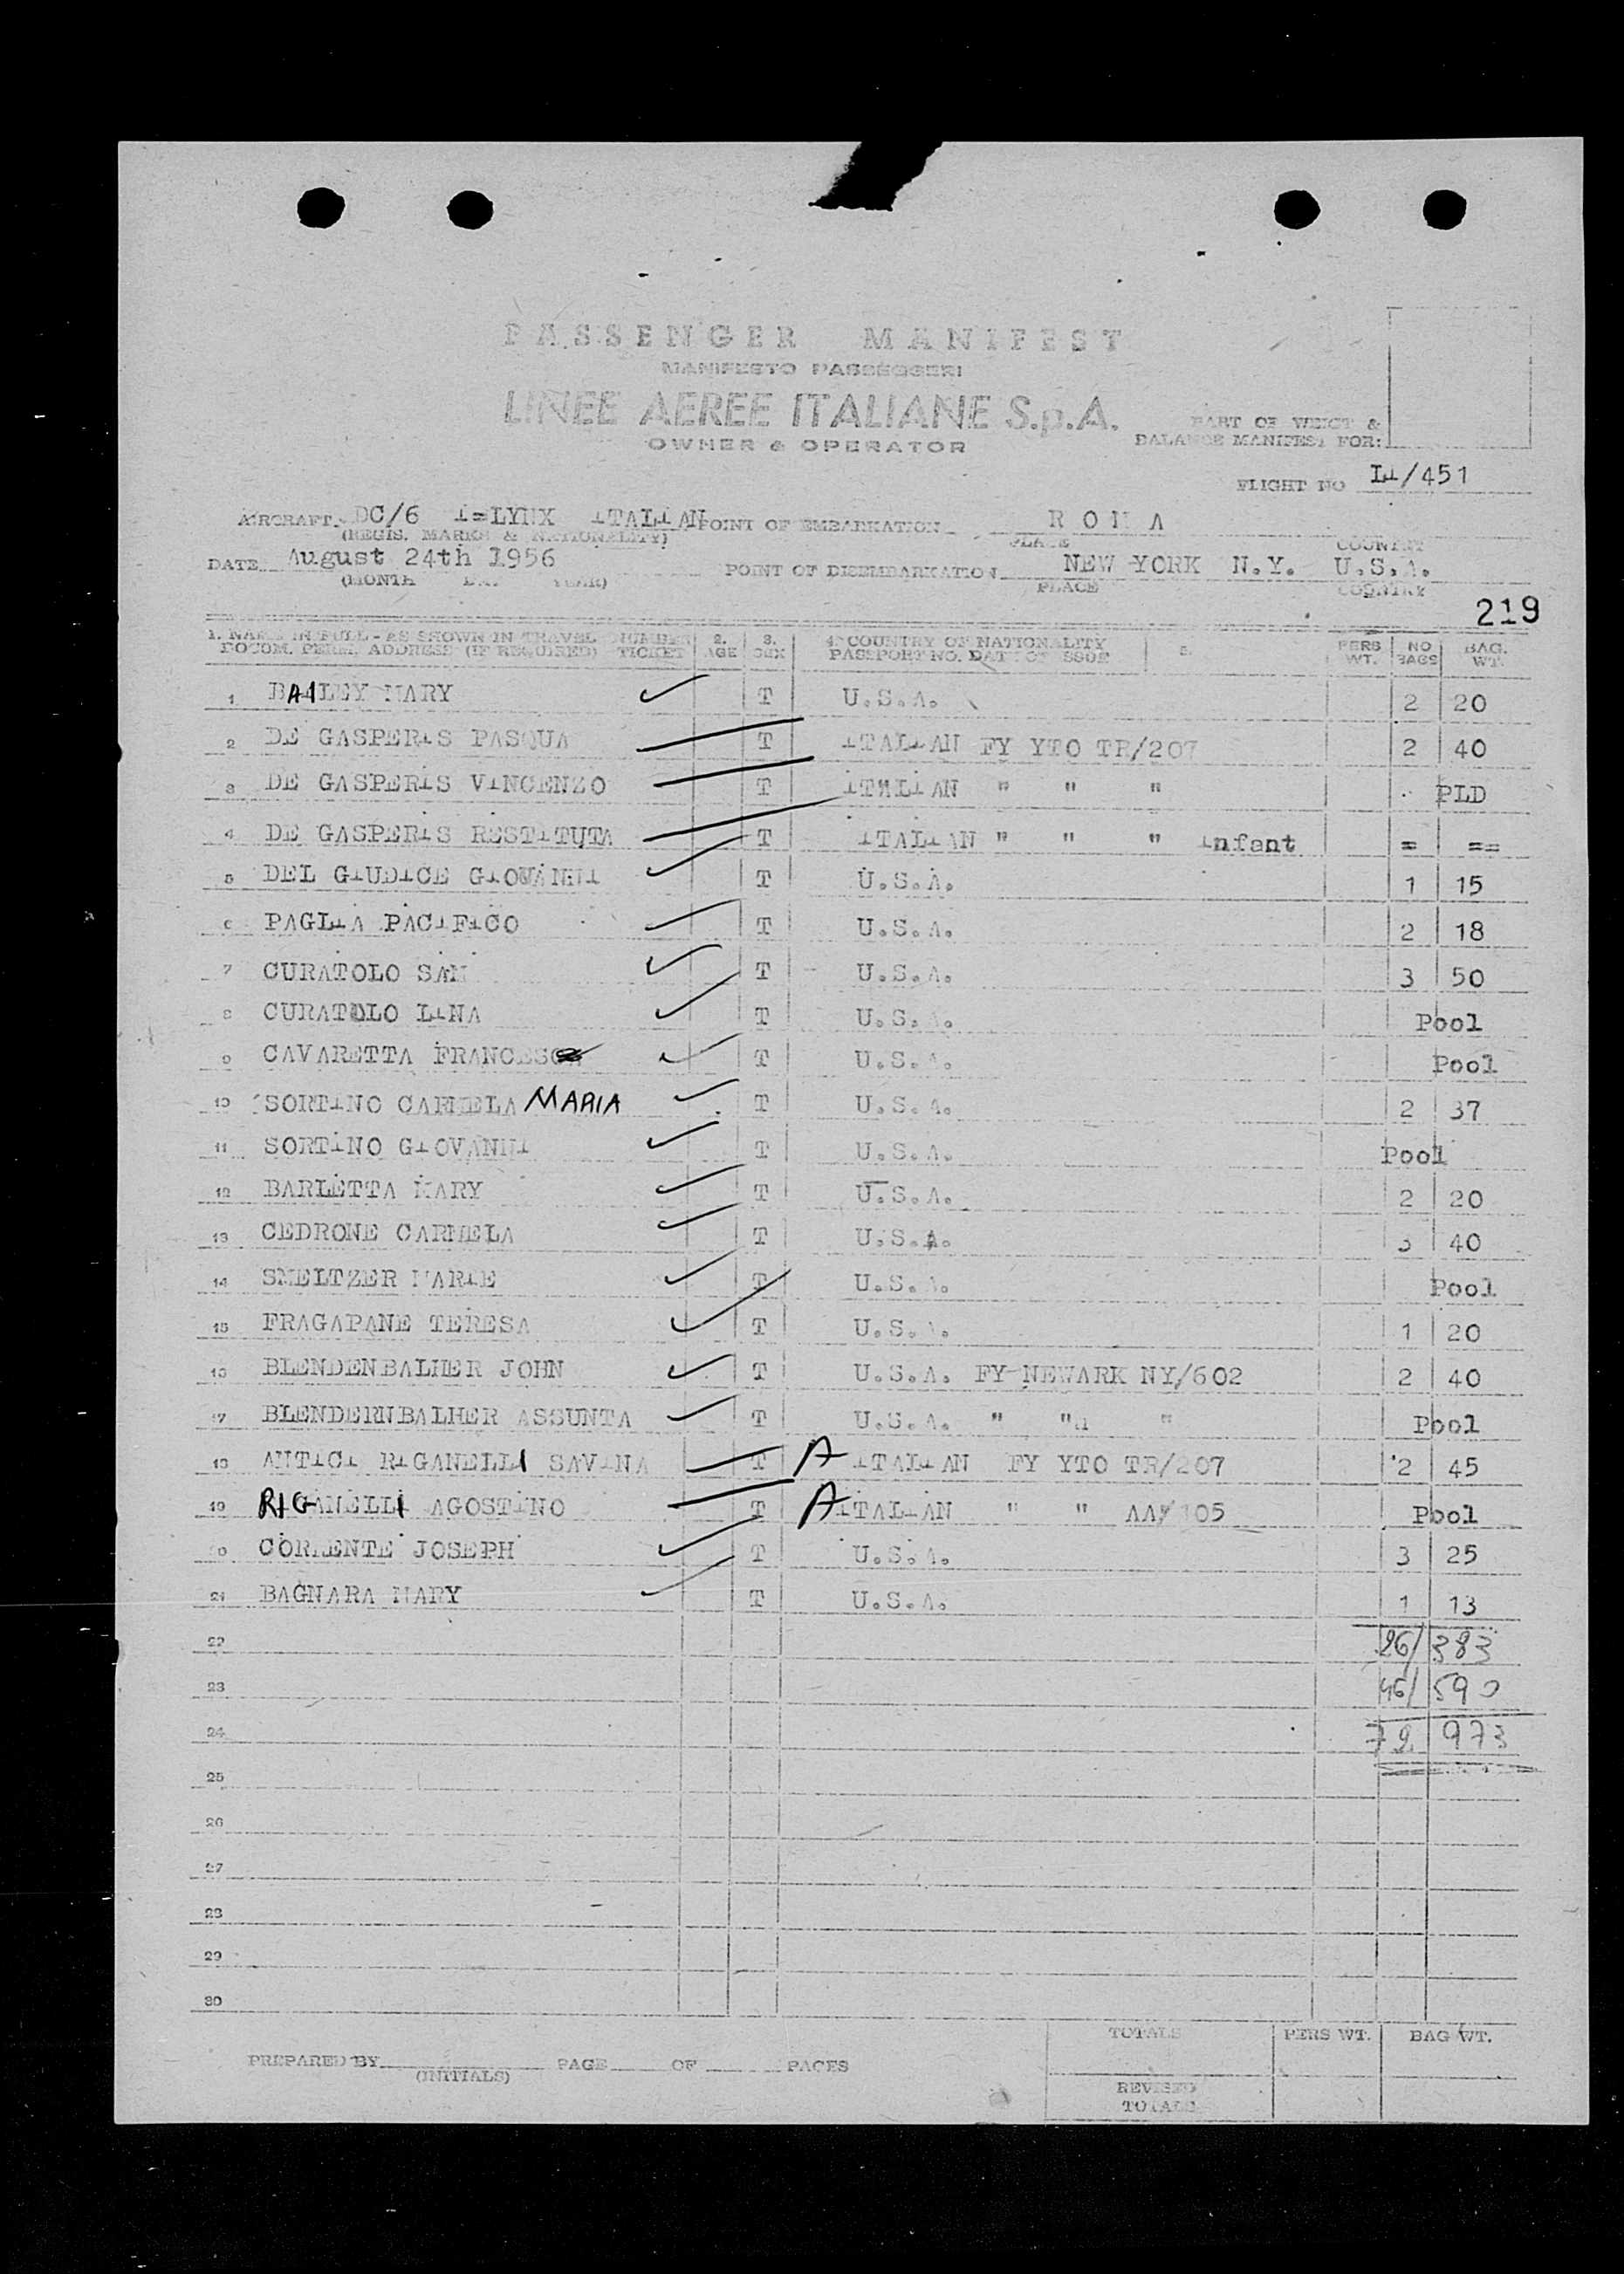 PASSENGER MANIFEST
MANIFESTO PASSEGGERI
LINEE AEREE ITALIANE S.p.A.
OWNER & OPERATOR
PART OF WEIGT &
BALANCE MANIFEST FOR:
FLIGHT NO LI/451
AIRCRAFT DC/6 I=LYNX ITALIAN POINT OF EMBARKATION ROMA
(REGIS. MARKS & NATIONALITY) PLACE COUNTRY
DATE August 24th 1956 POINT OF DISEMBARKATION NEW YORK N.Y. U.S.A.
(MONTH DAY YEAR) PLACE COUNTRY
219
1. NAME IN FULL - AS SHOWN IN TRAVEL NUMBER 2. 3. 4. COUNTRY OF NATIONALITY 5. PERS NO BAG.
DOCUM. PERM. ADDRESS (IF REQUIRED) TICKET AGE SEX PASSPORT NO. DATE OF ISSUE WT. BAGS WT.
1 BAILEY MARY T U.S.A. 2 20
2 DE GASPERIS PASQUA T ITALIAN FY YTO TR/207 2 40
3 DE GASPERIS VINCENZO T ITALIAN " " " PLD
4 DE GASPERIS RESTITUTA T ITALIAN " " " Infant = ==
5 DEL GIUDICE GIOVANNI T U.S.A. 1 15
6 PAGLIA PACIFICO T U.S.A. 2 18
7 CURATOLO SAM T U.S.A. 3 50
8 CURATOLO LINA T U.S.A. Pool
9 CAVARETTA FRANCESCA T U.S.A. Pool
10 SORTINO CARMELA MARIA T U.S.A. 2 37
11 SORTINO GIOVANNI T U.S.A. Pool
12 BARLETTA MARY T U.S.A. 2 20
13 CEDRONE CARMELA T U.S.A. 3 40
14 SMELTZER MARIE T U.S.A. Pool
15 FRAGAPANE TERESA T U.S.A. 1 20
16 BLENDENBALHER JOHN T U.S.A. FY NEWARK NY/602 2 40
17 BLENDERNBALHER ASSUNTA T U.S.A. " "" " Pool
18 ANTICI RIGANELLI SAVINA T A ITALIAN FY YTO TR/207 2 45
19 RIGANELLI AGOSTINO T A ITALIAN " " AA/105 Pool
20 CORMENTE JOSEPH T U.S.A. 3 25
21 BAGNARA MARY T U.S.A. 1 13
22 26/ 383
23 46/ 590
24 72 973
25
26
27
28
29
30
TOTALS PERS WT. BAG WT.
PREPARED BY PAGE OF PAGES
(INITIALS)
REVISED
TOTALS